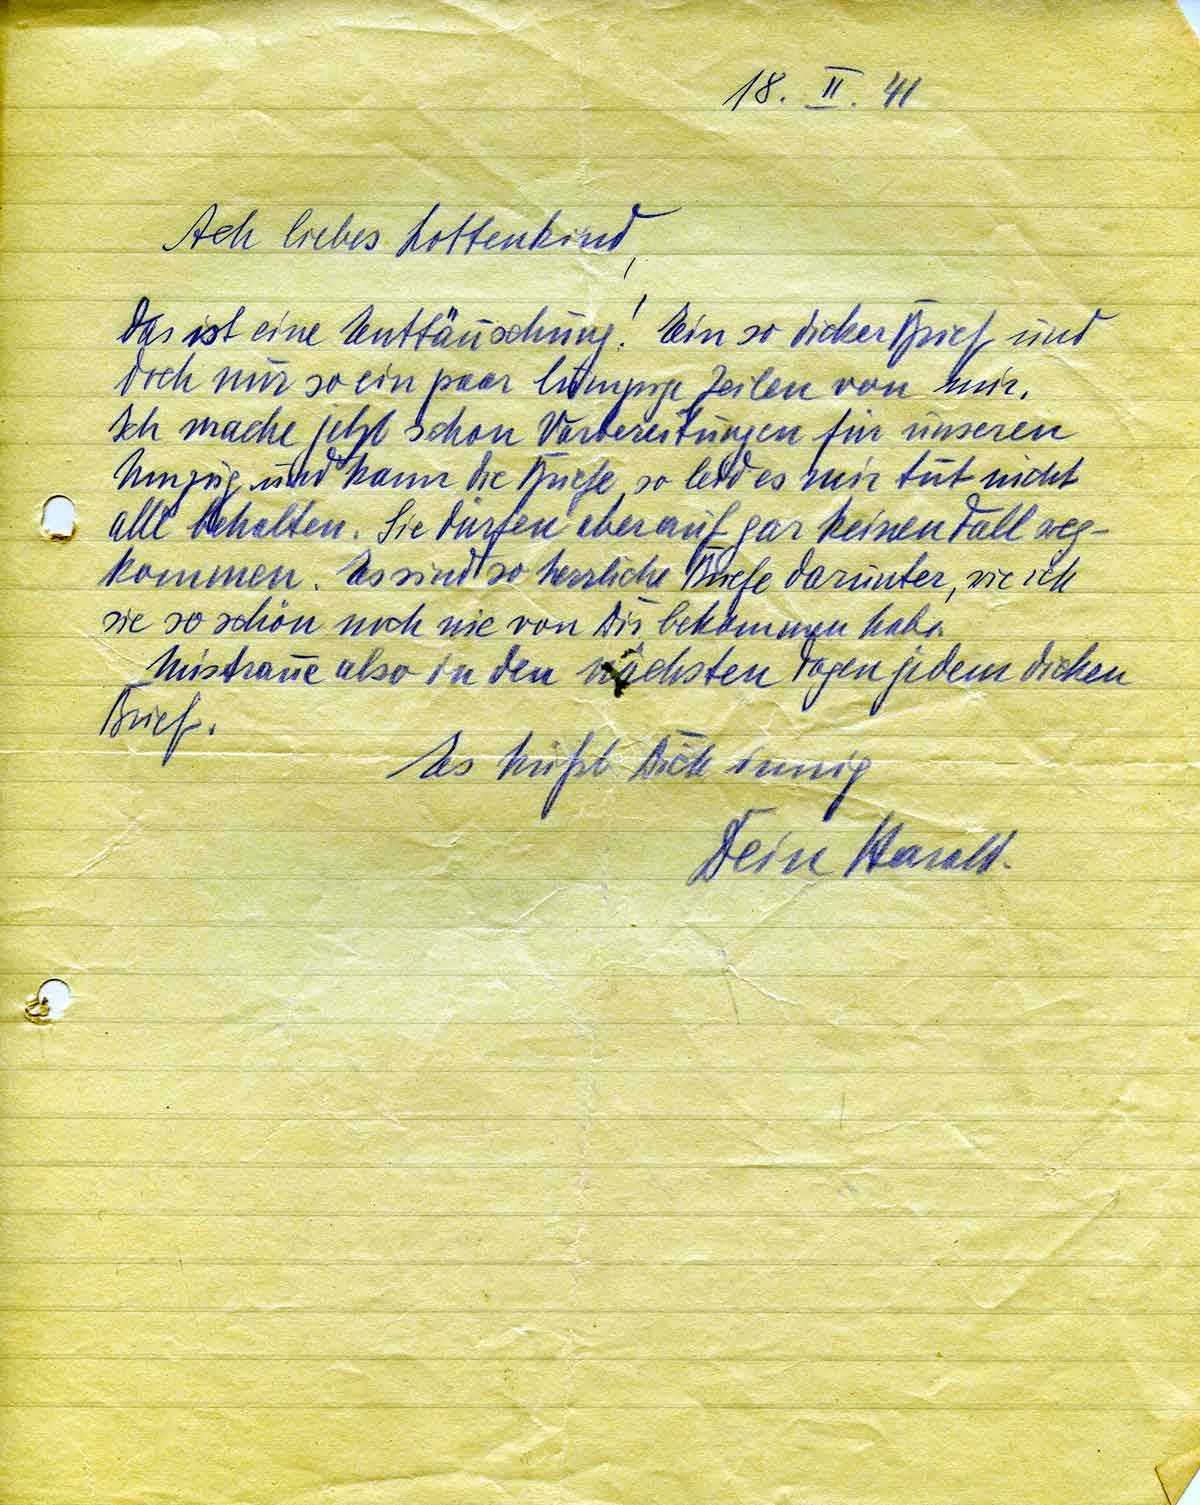 18. II. 41
Ach liebes Lottenkind,
das ist eine Enttäuschung! Ein so dicker Brief und
doch nur so ein paar lumpige Zeilen von mir.
Ich mache jetzt schon Vorbereitungen für unseren
Umzug und kann die Briefe, so leid es mir tut nicht
alle behalten. Sie dürfen aber auf gar keinen Fall weg-
kommen. Es sind so herrliche Briefe darunter, wie ich
sie so schön noch nie von Dir bekommen habe.
Mistraue also in den nächsten Tagen jedem dicken
Brief.
Es küßt Dich innig
Dein Harald.